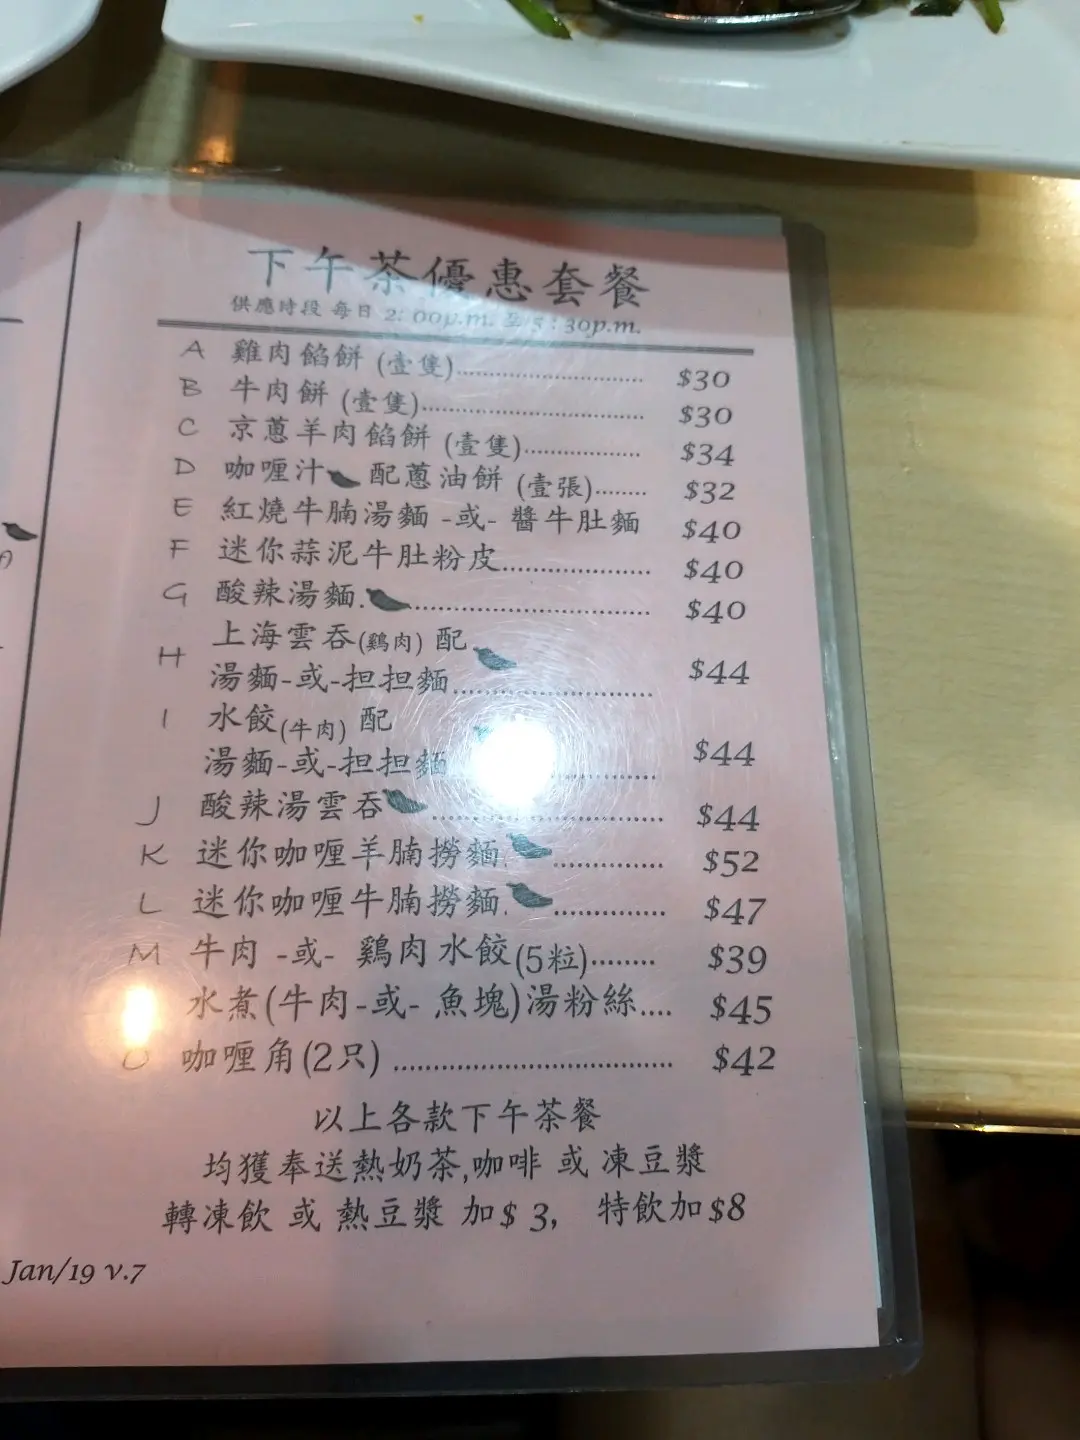 下午茶優惠套餐
供應時段 每日 2:00p.m. 至 5:30p.m.
A 雞肉餡餅 (壹隻)........................... $30
B 牛肉餅 (壹隻)................................ $30
C 京蔥羊肉餡餅 (壹隻)................. $34
D 咖喱汁 配蔥油餅 (壹張)........ $32
E 紅燒牛腩湯麵 -或- 醬牛肚麵 $40
F 迷你蒜泥牛肚粉皮..................... $40
G 酸辣湯麵.................................. $40
H 上海雲吞(鷄肉) 配
湯麵-或-担担麵............................ $44
I 水餃(牛肉) 配
湯麵-或-担担麵............................ $44
J 酸辣湯雲吞 ................................ $44
K 迷你咖喱羊腩撈麵. ............... $52
L 迷你咖喱牛腩撈麵. ............... $47
M 牛肉 -或- 鷄肉水餃(5粒)........ $39
水煮(牛肉-或- 魚塊)湯粉絲.... $45
O 咖喱角(2只) ..................................... $42
以上各款下午茶餐
均獲奉送熱奶茶,咖啡 或 凍豆漿
轉凍飲 或 熱豆漿 加$ 3, 特飲加$8
Jan/19 v.7